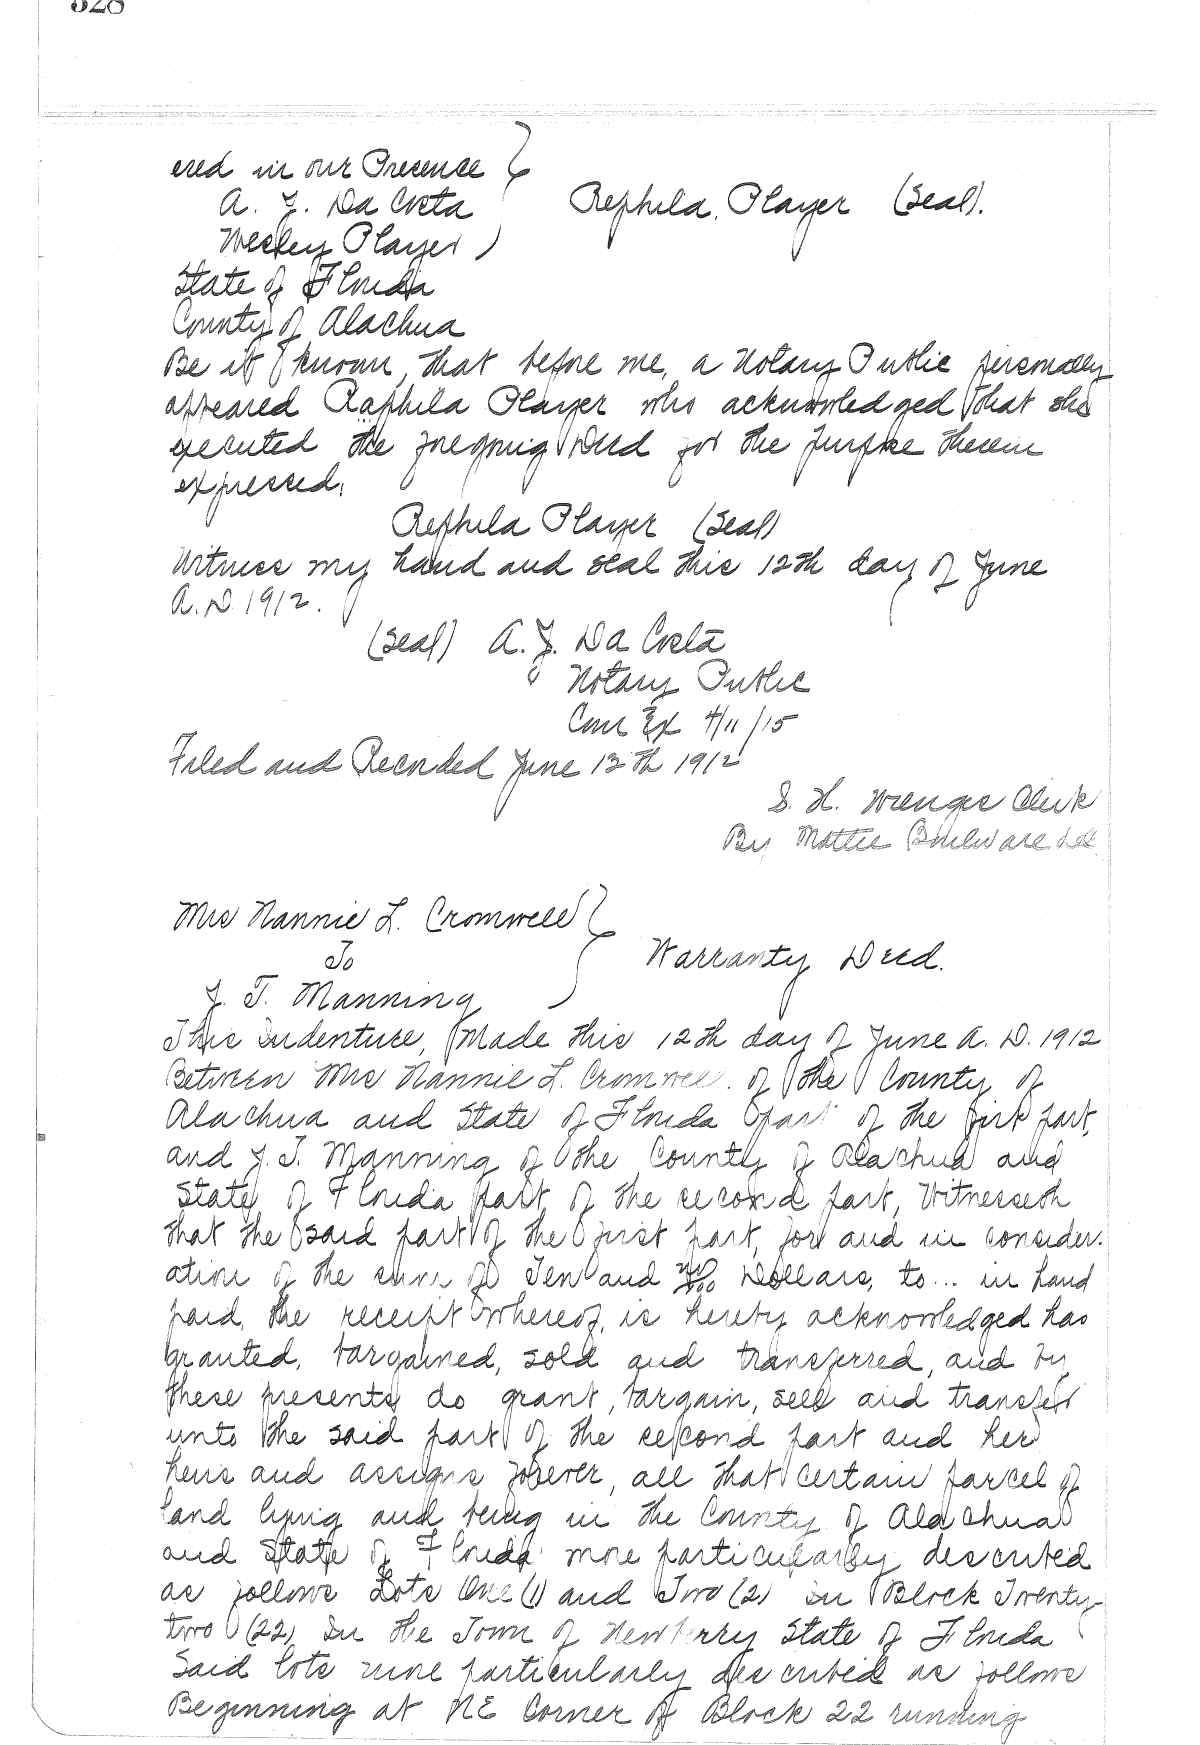 328
ered in our Presence
A. J. Da Costa
Wesley Player
Rephila Player (Seal).
State of Florida
County of Alachua
Be it known, that before me, a Notary Public personally
appeared Raphila Player who acknowledged that she
executed the foregoing Deed for the purpose therein
expressed.
Rephila Player (Seal)
Witness my hand and seal this 12th day of June
A.D. 1912.
(Seal) A. J. Da Costa
Notary Public
Com Ex 4/11/15
Filed and Recorded June 13th 1912
S. H. Wienges Clerk
By Mattie Boulware
Mrs Nannie L. Cromwell
To
J. T. Manning
Warranty Deed.
This Indenture, Made this 12th day of June A. D. 1912
Between Mrs Nannie L. Cromwell. of the County of
Alachua and State of Florida part of the first part,
and J. T. Manning of the County of Alachua and
State of Florida part of the second part, Witnesseth
that the said part of the first part, for and in consider-
ation of the sum of Ten and no/100 Dollars, to... in hand
paid, the receipt whereof, is hereby acknowledged has
granted, bargained, sold and transferred, and by
these presents do grant, bargain, sell and transfer
unto the said part of the second part and her
heirs and assigns forever, all that certain parcel of
land lying and being in the County of Alachua
and State of Florida more particularly described
as follows Lots One (1) and Two (2) In Block Twenty
two (22) In the Town of Newberry State of Florida
Said lots more particularly described as follows
Beginning at NE Corner of Block 22 running